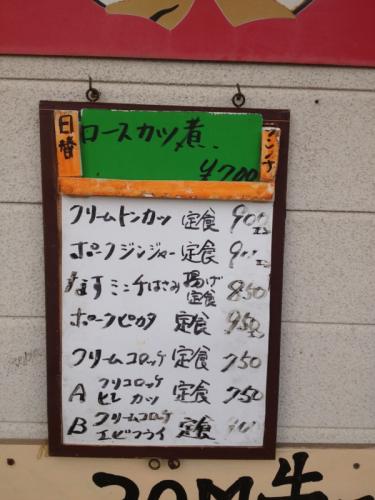 日替
ロースカツ煮.
ランチ
¥700
クリームトンカツ 定食 900
ポークジンジャー 定食
なすミンチはさみ 揚げ定食 850
ポークピカタ 定食 950
クリームコロッケ 定食 750
A クリコロッケ ヒレカツ 定食 750
B クリームコロッケ エビフライ 定食